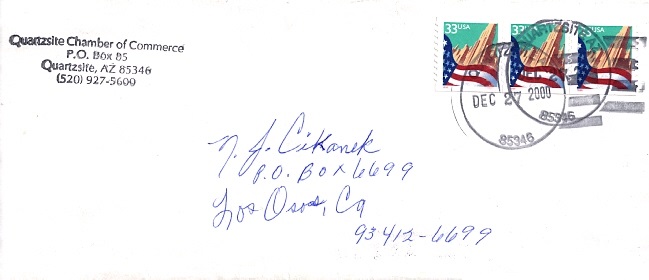 Quartzsite Chamber of Commerce
P.O. Box 85
Quartzsite, AZ 85346
(520) 927-5600
33 USA
33 USA
33
QUARTZSITE AZ
DEC 27 2000
85346
85346
N. J. Cikanek
P.O. BOX 6699
Los Osos, Ca
93412-6699